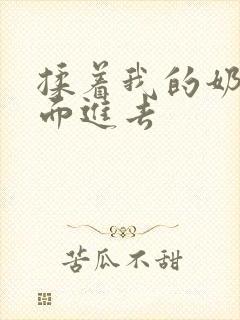 揉着我的奶
而進去
苦瓜不甜